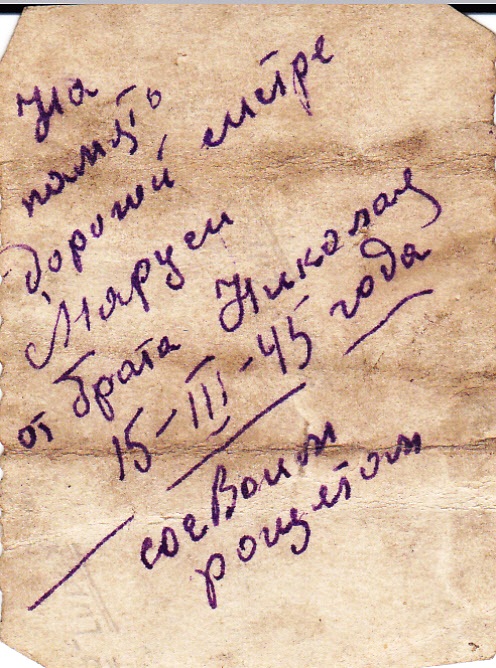 На
память
дорогой сестре
Маруси
от брата Николая
15-III-45 года
сосвоим
рощетом